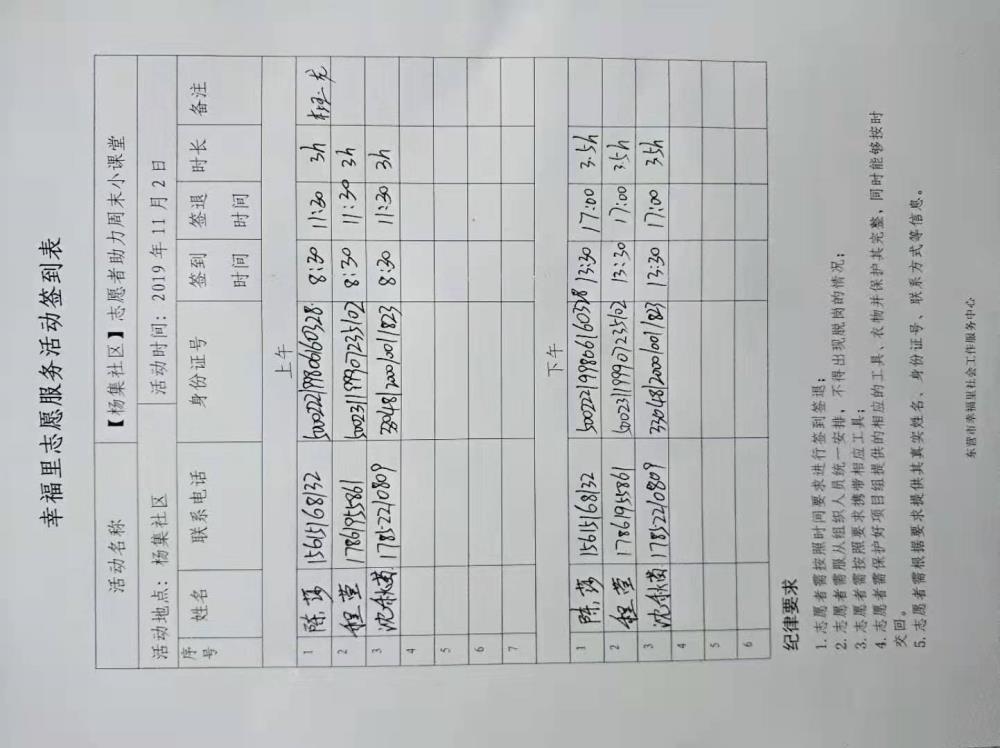 幸福里志愿服务活动签到表
活动名称 【杨集社区】志愿者助力周末小课堂
活动地点：杨集社区 活动时间：2019年11月2日
序号 姓名 联系电话 身份证号 签到时间 签退时间 时长 备注
上午
1 陈莎 15615168132 500222199806160328 8:30 11:30 3h
2 程莹 17861955861 500231199907235102 8:30 11:30 3h
3 沈秋茵 17852210809 330481200010011823 8:30 11:30 3h
4
5
6
7
下午
1 陈莎 15615168132 500222199806160328 13:30 17:00 3.5h
2 程莹 17861955861 500231199907235102 13:30 17:00 3.5h
3 沈秋茵 17852210809 330481200010011823 13:30 17:00 3.5h
4
5
6
纪律要求
1.志愿者需按照时间要求进行签到签退；
2.志愿者需服从组织人员统一安排，不得出现脱岗的情况；
3.志愿者需按照要求携带相应工具；
4.志愿者需保护好项目组提供的相应的工具、衣物并保护其完整，同时能够按时
交回。
5.志愿者需根据要求提供其真实姓名、身份证号、联系方式等信息。
东营市幸福里社会工作服务中心